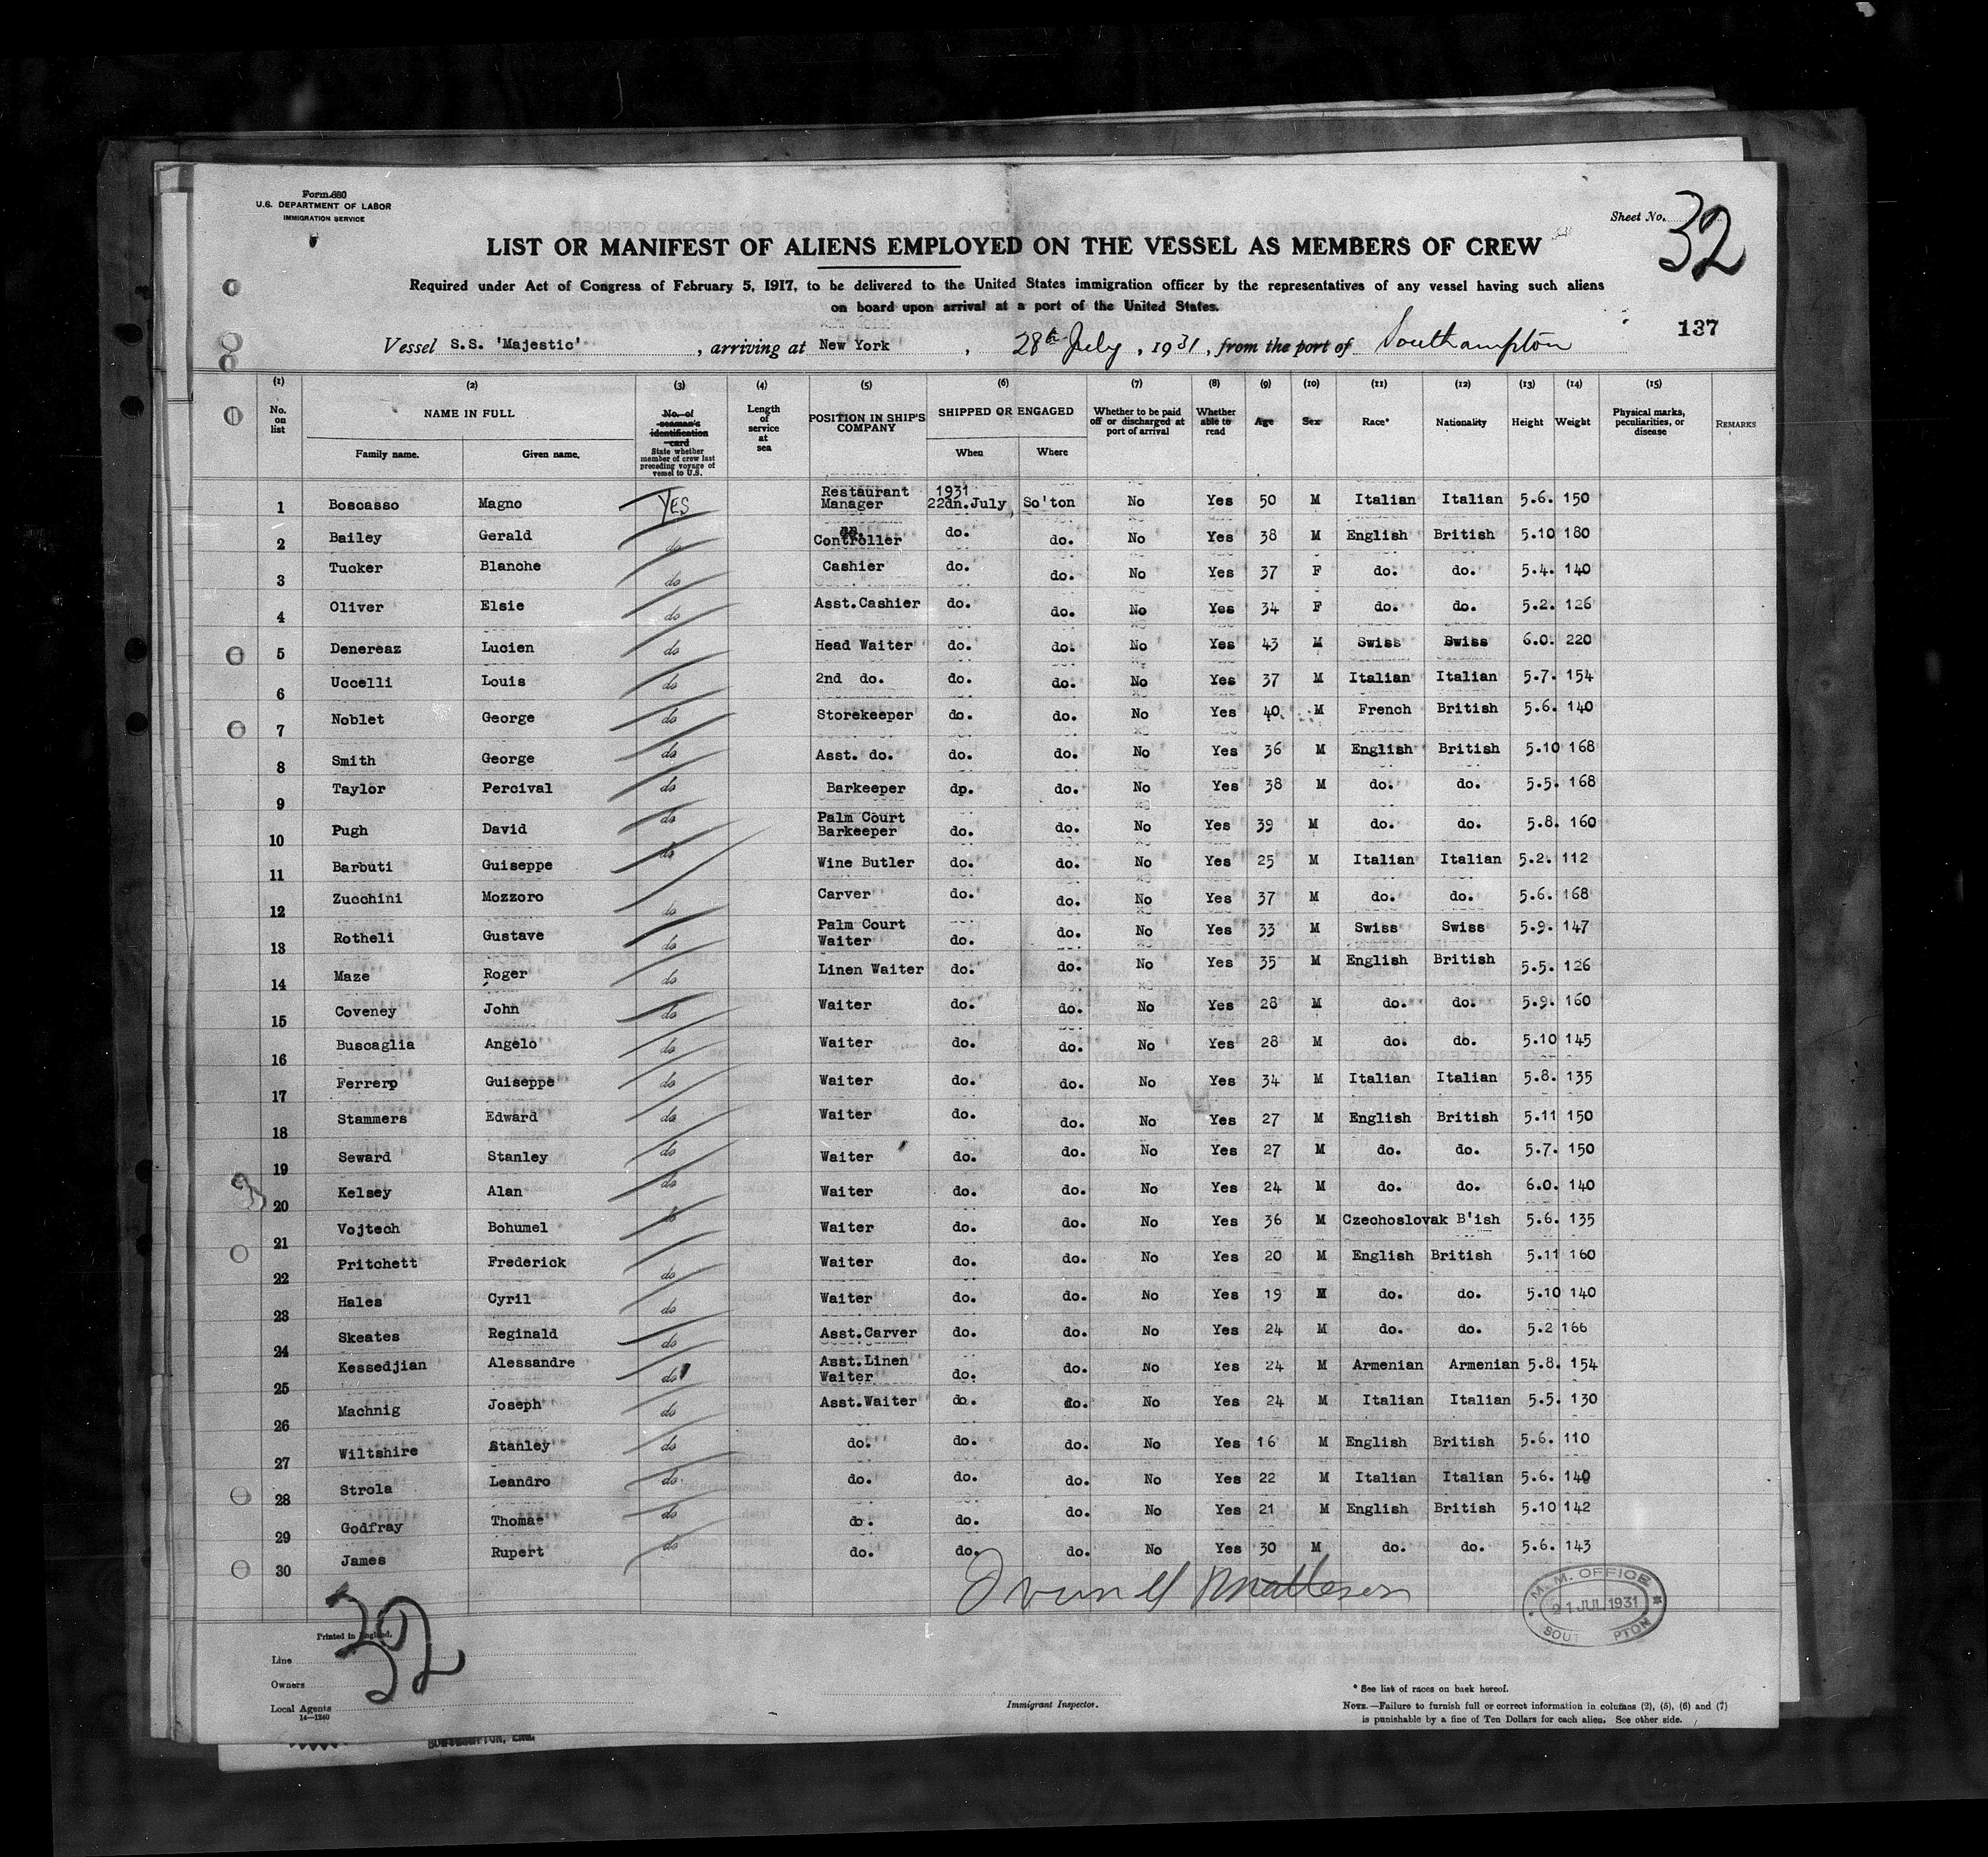 Form 680
U.S. DEPARTMENT OF LABOR
IMMIGRATION SERVICE
Sheet No. 32
LIST OR MANIFEST OF ALIENS EMPLOYED ON THE VESSEL AS MEMBERS OF CREW
Required under Act of Congress of February 5, 1917, to be delivered to the United States immigration officer by the representatives of any vessel having such aliens
on board upon arrival at a port of the United States.
137
Vessel S.S. 'Majestic' , arriving at New York , 28th July , 1931 , from the port of Southampton
(1) (2) (3) (4) (5) (6) (7) (8) (9) (10) (11) (12) (13) (14) (15)
No. on list NAME IN FULL Family name. Given name. No. of seaman's identification card State whether member of crew last preceding voyage of vessel to U.S. Length of service at sea POSITION IN SHIP'S COMPANY SHIPPED OR ENGAGED When Where Whether to be paid off or discharged at port of arrival Whether able to read Age Sex Race* Nationality Height Weight Physical marks, peculiarities, or disease REMARKS
1 Boscasso Magno YES Restaurant Manager 1931 22dn.July So'ton No Yes 50 M Italian Italian 5.6. 150
2 Bailey Gerald do do. Controller do. do. No Yes 38 M English British 5.10 180
3 Tucker Blanche do Cashier do. do. No Yes 37 F do. do. 5.4. 140
4 Oliver Elsie do Asst.Cashier do. do. No Yes 34 F do. do. 5.2. 126
5 Denereaz Lucien do Head Waiter do. do. No Yes 43 M Swiss Swiss 6.0. 220
6 Uccelli Louis do 2nd do. do. do. No Yes 37 M Italian Italian 5.7. 154
7 Noblet George do Storekeeper do. do. No Yes 40 M French British 5.6. 140
8 Smith George do Asst. do. do. do. No Yes 36 M English British 5.10 168
9 Taylor Percival do Barkeeper dp. do. No Yes 38 M do. do. 5.5. 168
10 Pugh David do Palm Court Barkeeper do. do. No Yes 39 M do. do. 5.8. 160
11 Barbuti Guiseppe do Wine Butler do. do. No Yes 25 M Italian Italian 5.2. 112
12 Zucchini Mozzoro do Carver do. do. No Yes 37 M do. do. 5.6. 168
13 Rotheli Gustave do Palm Court Waiter do. do. No Yes 33 M Swiss Swiss 5.9. 147
14 Maze Roger do Linen Waiter do. do. No Yes 35 M English British 5.5. 126
15 Coveney John do Waiter do. do. No Yes 28 M do. do. 5.9. 160
16 Buscaglia Angelo do Waiter do. do. No Yes 28 M do. do. 5.10 145
17 Ferrerp Guiseppe do Waiter do. do. No Yes 34 M Italian Italian 5.8. 135
18 Stammers Edward do Waiter do. do. No Yes 27 M English British 5.11 150
19 Seward Stanley do Waiter do. do. No Yes 27 M do. do. 5.7. 150
20 Kelsey Alan do Waiter do. do. No Yes 24 M do. do. 6.0. 140
21 Vojtech Bohumel do Waiter do. do. No Yes 36 M Czechoslovak B'ish 5.6. 135
22 Pritchett Frederick do Waiter do. do. No Yes 20 M English British 5.11 160
23 Hales Cyril do Waiter do. do. No Yes 19 M do. do. 5.10 140
24 Skeates Reginald do Asst.Carver do. do. No Yes 24 M do. do. 5.2 166
25 Kessedjian Alessandre do Asst.Linen Waiter do. do. No Yes 24 M Armenian Armenian 5.8. 154
26 Machnig Joseph do Asst.Waiter do. do. No Yes 24 M Italian Italian 5.5. 130
27 Wiltshire Stanley do do. do. do. No Yes 16 M English British 5.6. 110
28 Strola Leandro do do. do. do. No Yes 22 M Italian Italian 5.6. 140
29 Godfray Thomas do do. do. do. No Yes 21 M English British 5.10 142
30 James Rupert do do. do. do. No Yes 30 M do. do. 5.6. 143
M.M. OFFICE
21 JUL 1931
SOUT PTON
32
Printed in England.
Line
Owners
Local Agents
14—1240
Immigrant Inspector.
* See list of races on back hereof.
NOTE.—Failure to furnish full or correct information in columns (2), (5), (6) and (7)
is punishable by a fine of Ten Dollars for each alien. See other side.